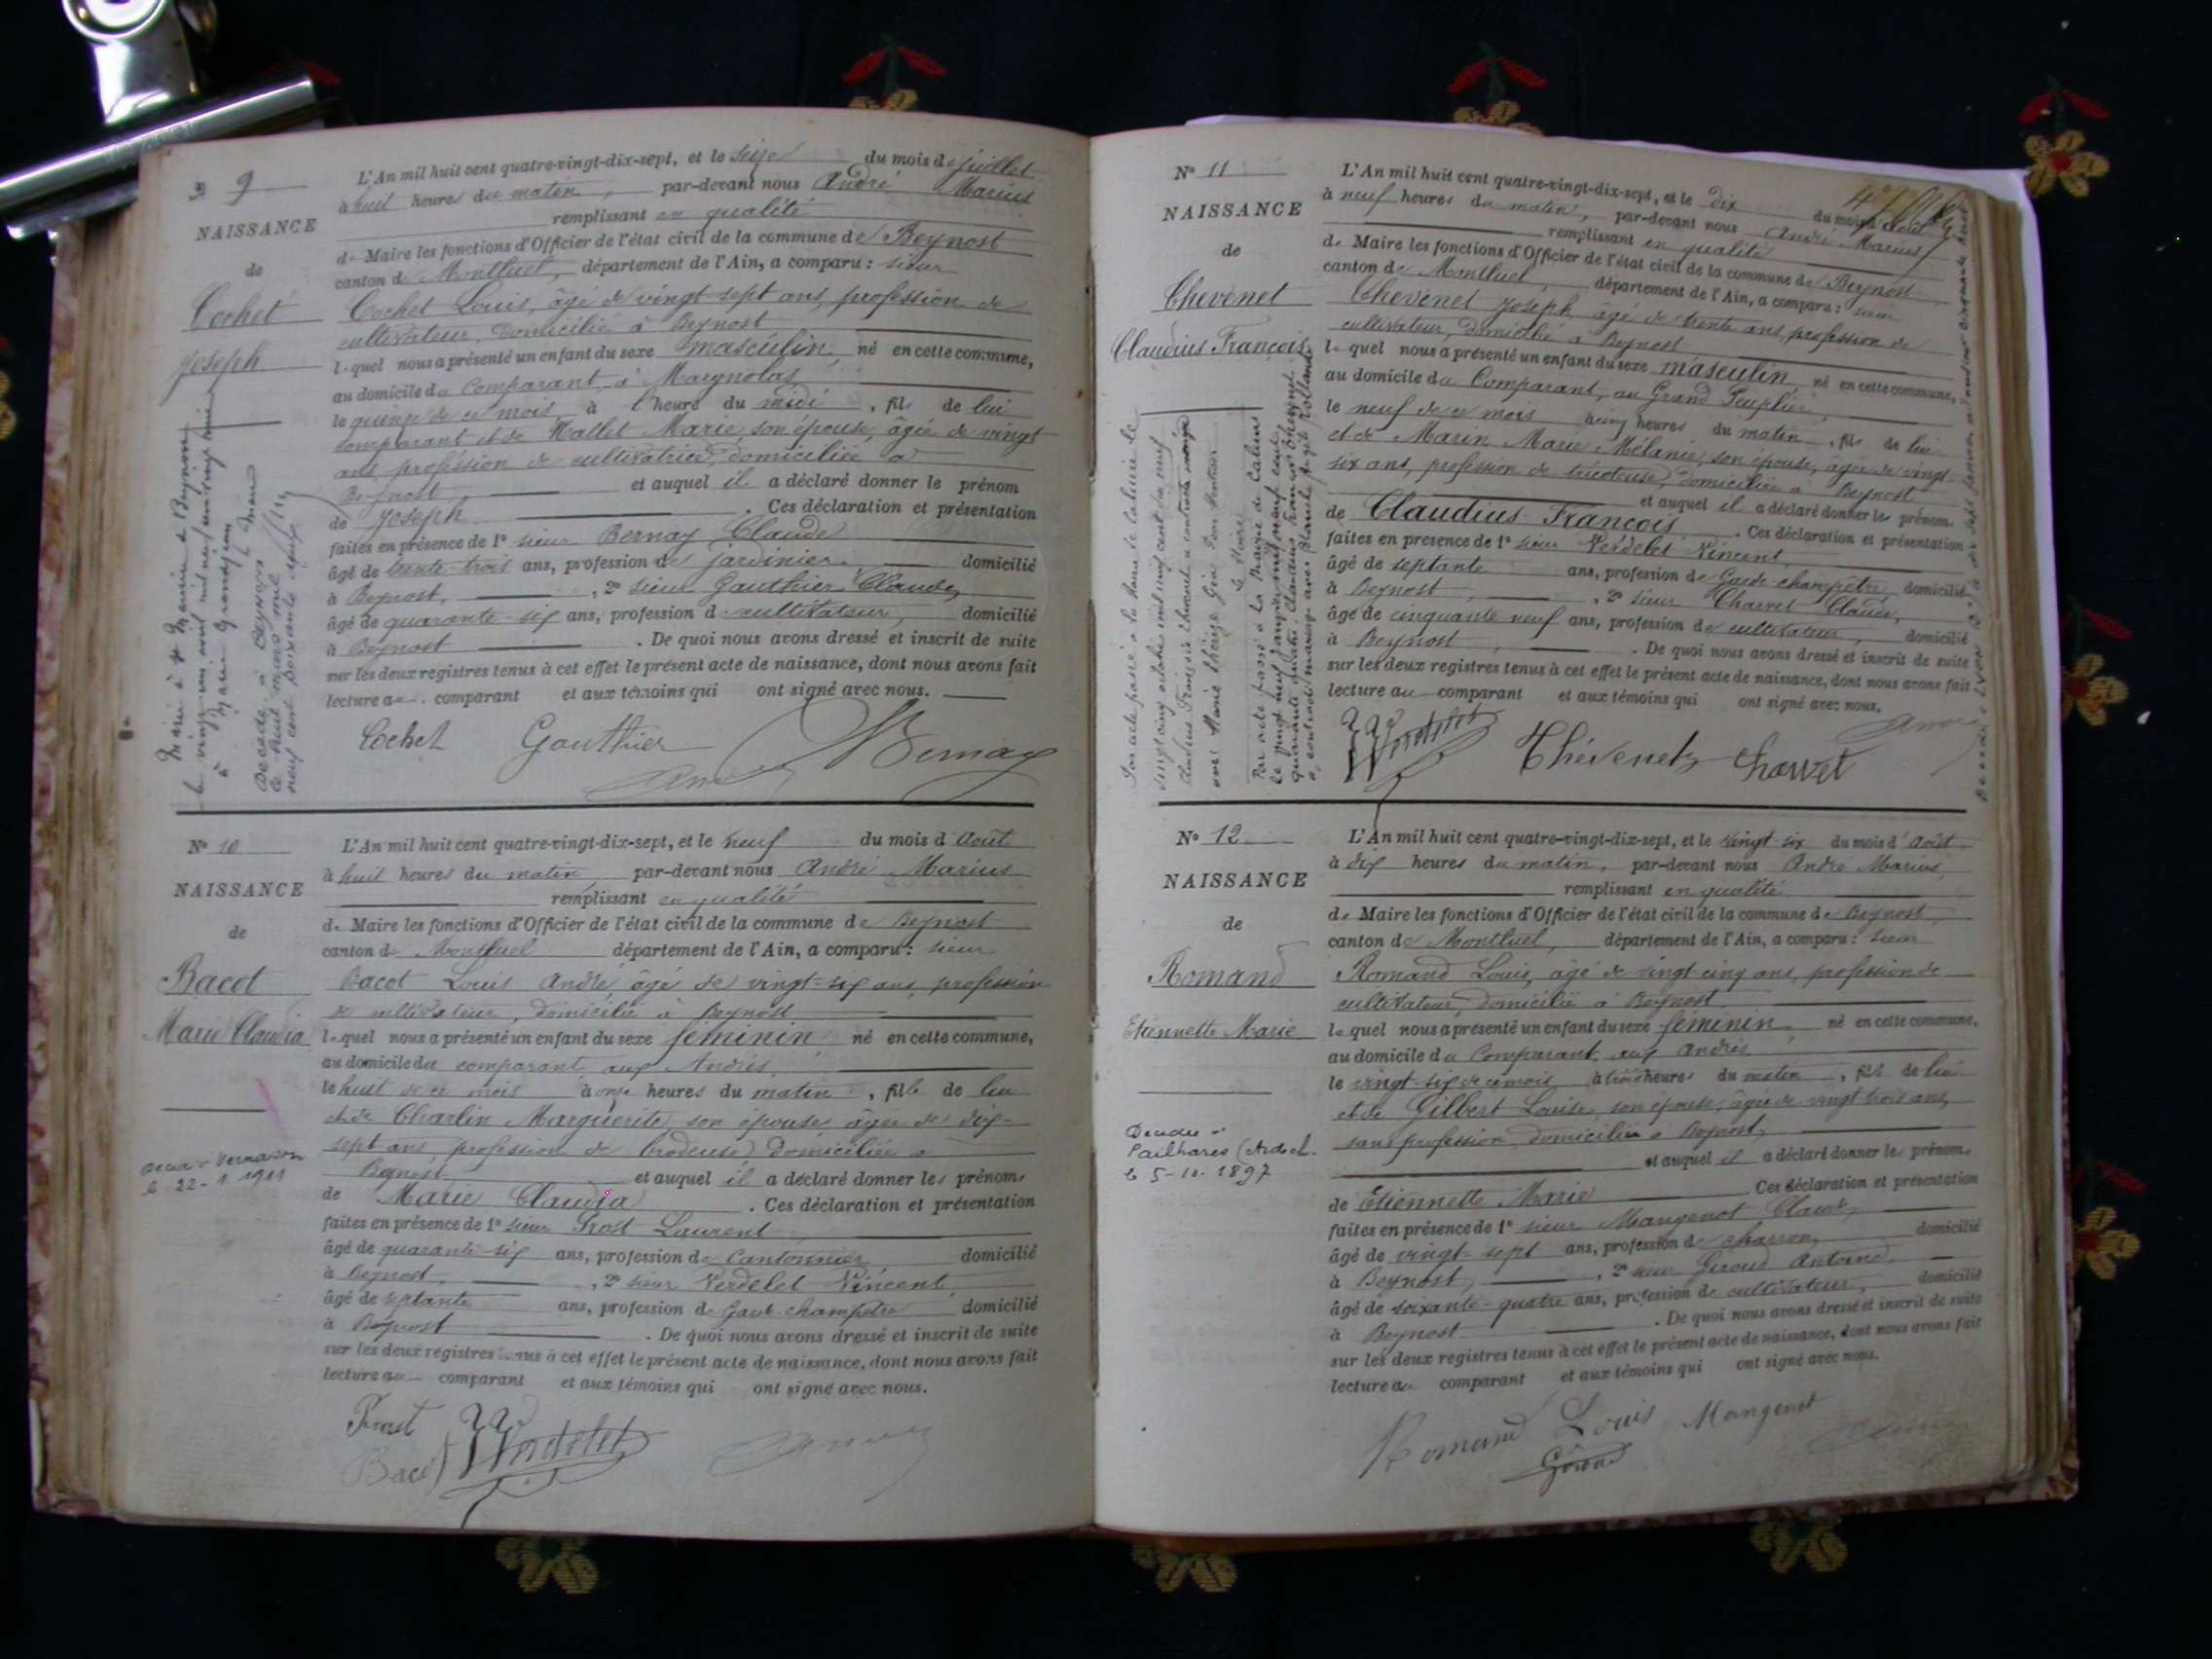 N° 9
NAISSANCE
de
Cochet
Joseph
L'An mil huit cent quatre-vingt-dix-sept, et le seize du mois de juillet
à huit heures du matin, par-devant nous André Marius
remplissant en qualité
de Maire les fonctions d'Officier de l'état civil de la commune de Beynost
canton de Montluel, département de l'Ain, a comparu : sieur
Cochet Louis, âgé de vingt sept ans, profession de
cultivateur, domicilié à Beynost
lequel nous a présenté un enfant du sexe masculin, né en cette commune,
au domicile du Comparant à Margnolas
le quinze de ce mois à l'heure du midi, fils de lui
comparant et de Mallet Marie, son épouse, âgée de vingt
ans, profession de cultivatrice, domiciliée à
Beynost, et auquel il a déclaré donner le prénom
de Joseph. Ces déclaration et présentation
faites en présence de 1° sieur Bernay Claude
âgé de trente-trois ans, profession de jardinier domicilié
à Beynost, 2° sieur Gauthier Claude,
âgé de quarante-six ans, profession de cultivateur, domicilié
à Beynost. De quoi nous avons dressé et inscrit de suite
sur les deux registres tenus à cet effet le présent acte de naissance, dont nous avons fait
lecture au comparant et aux témoins qui ont signé avec nous.
Cochet Gauthier Bernay
Décédé à Beynost
le huit mars mil
neuf cent soixante
N° 10
NAISSANCE
de
Bacot
Marie Claudia
22-1 1911
L'An mil huit cent quatre-vingt-dix-sept, et le neuf du mois d'Août
à huit heures du matin par-devant nous André Marius
remplissant en qualité
de Maire les fonctions d'Officier de l'état civil de la commune de Beynost
canton de Montluel département de l'Ain, a comparu : sieur
Bacot Louis André âgé de vingt-six ans, profession
de cultivateur, domicilié à Beynost
lequel nous a présenté un enfant du sexe féminin né en cette commune,
au domicile du comparant aux Andrés,
le huit de ce mois à onze heures du matin, fille de lui
et de Charlin Marguerite, son épouse âgée de dix-
sept ans, profession de brodeuse, domiciliée à
Beynost et auquel il a déclaré donner les prénoms
de Marie Claudia. Ces déclaration et présentation
faites en présence de 1° sieur Prost Laurent
âgé de quarante-six ans, profession de Cantonnier domicilié
à Beynost, 2° sieur Verdelet Vincent,
âgé de septante ans, profession de Garde champêtre domicilié
à Beynost. De quoi nous avons dressé et inscrit de suite
sur les deux registres tenus à cet effet le présent acte de naissance, dont nous avons fait
lecture au comparant et aux témoins qui ont signé avec nous.
Prost Verdelet
Bacot
N° 11
NAISSANCE
de
Chevenet
Claudius François
L'An mil huit cent quatre-vingt-dix-sept, et le dix du mois d'Août
à neuf heures du matin, par-devant nous André Marius
remplissant en qualité
de Maire les fonctions d'Officier de l'état civil de la commune de Beynost
canton de Montluel, département de l'Ain, a comparu : sieur
Chevenet Joseph, âgé de trente ans, profession de
cultivateur, domicilié à Beynost
lequel nous a présenté un enfant du sexe masculin né en cette commune,
au domicile du Comparant, au Grand Peuplier,
le neuf de ce mois à cinq heures du matin, fils de lui
et de Marin Marie Mélanie, son épouse, âgée de vingt
six ans, profession de tricoteuse, domiciliée à Beynost
et auquel il a déclaré donner les prénoms
de Claudius François. Ces déclaration et présentation
faites en présence de 1° sieur Verdelet Vincent,
âgé de septante ans, profession de Garde-champêtre, domicilié
à Beynost, 2° sieur Charvet Claude,
âgé de cinquante neuf ans, profession de cultivateur, domicilié
à Beynost. De quoi nous avons dressé et inscrit de suite
sur les deux registres tenus à cet effet le présent acte de naissance, dont nous avons fait
lecture au comparant et aux témoins qui ont signé avec nous.
Verdelet Thévenet Charvet
N° 12
NAISSANCE
de
Romand
Etiennette Marie
Pailhares (Ardèch.
le 5-10-1897
L'An mil huit cent quatre-vingt-dix-sept, et le vingt-six du mois d'Août
à dix heures du matin, par-devant nous André Marius,
remplissant en qualité
de Maire les fonctions d'Officier de l'état civil de la commune de Beynost,
canton de Montluel, département de l'Ain, a comparu : sieur
Romand Louis, âgé de vingt-cinq ans, profession de
cultivateur, domicilié à Beynost
lequel nous a présenté un enfant du sexe féminin, né en cette commune,
au domicile du Comparant aux Andrés,
le vingt-six de ce mois à trois heures du matin, fille de lui
et de Gilbert Louise, son épouse, âgée de vingt trois ans,
sans profession, domiciliée à Beynost,
et auquel il a déclaré donner les prénoms
de Etiennette Marie. Ces déclaration et présentation
faites en présence de 1° sieur Mangenot Claude,
âgé de vingt-sept ans, profession de charron, domicilié
à Beynost, 2° sieur Geroud Antoine,
âgé de soixante-quatre ans, profession de cultivateur, domicilié
à Beynost. De quoi nous avons dressé et inscrit de suite
sur les deux registres tenus à cet effet le présent acte de naissance, dont nous avons fait
lecture au comparant et aux témoins qui ont signé avec nous.
Romand Louis Mangenot